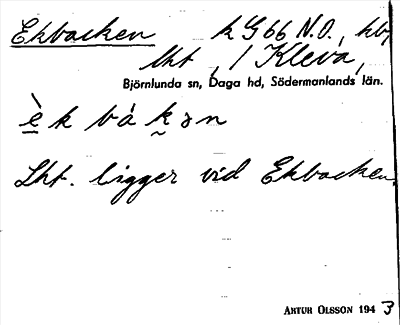 Ekbacken k G 66 N.O., hby
lht, / Kleva,
Björnlunda sn, Daga hd, Södermanlands län.
è k b à k ə n
Lht. ligger vid Ekbacken.
ARTUR OLSSON 1943